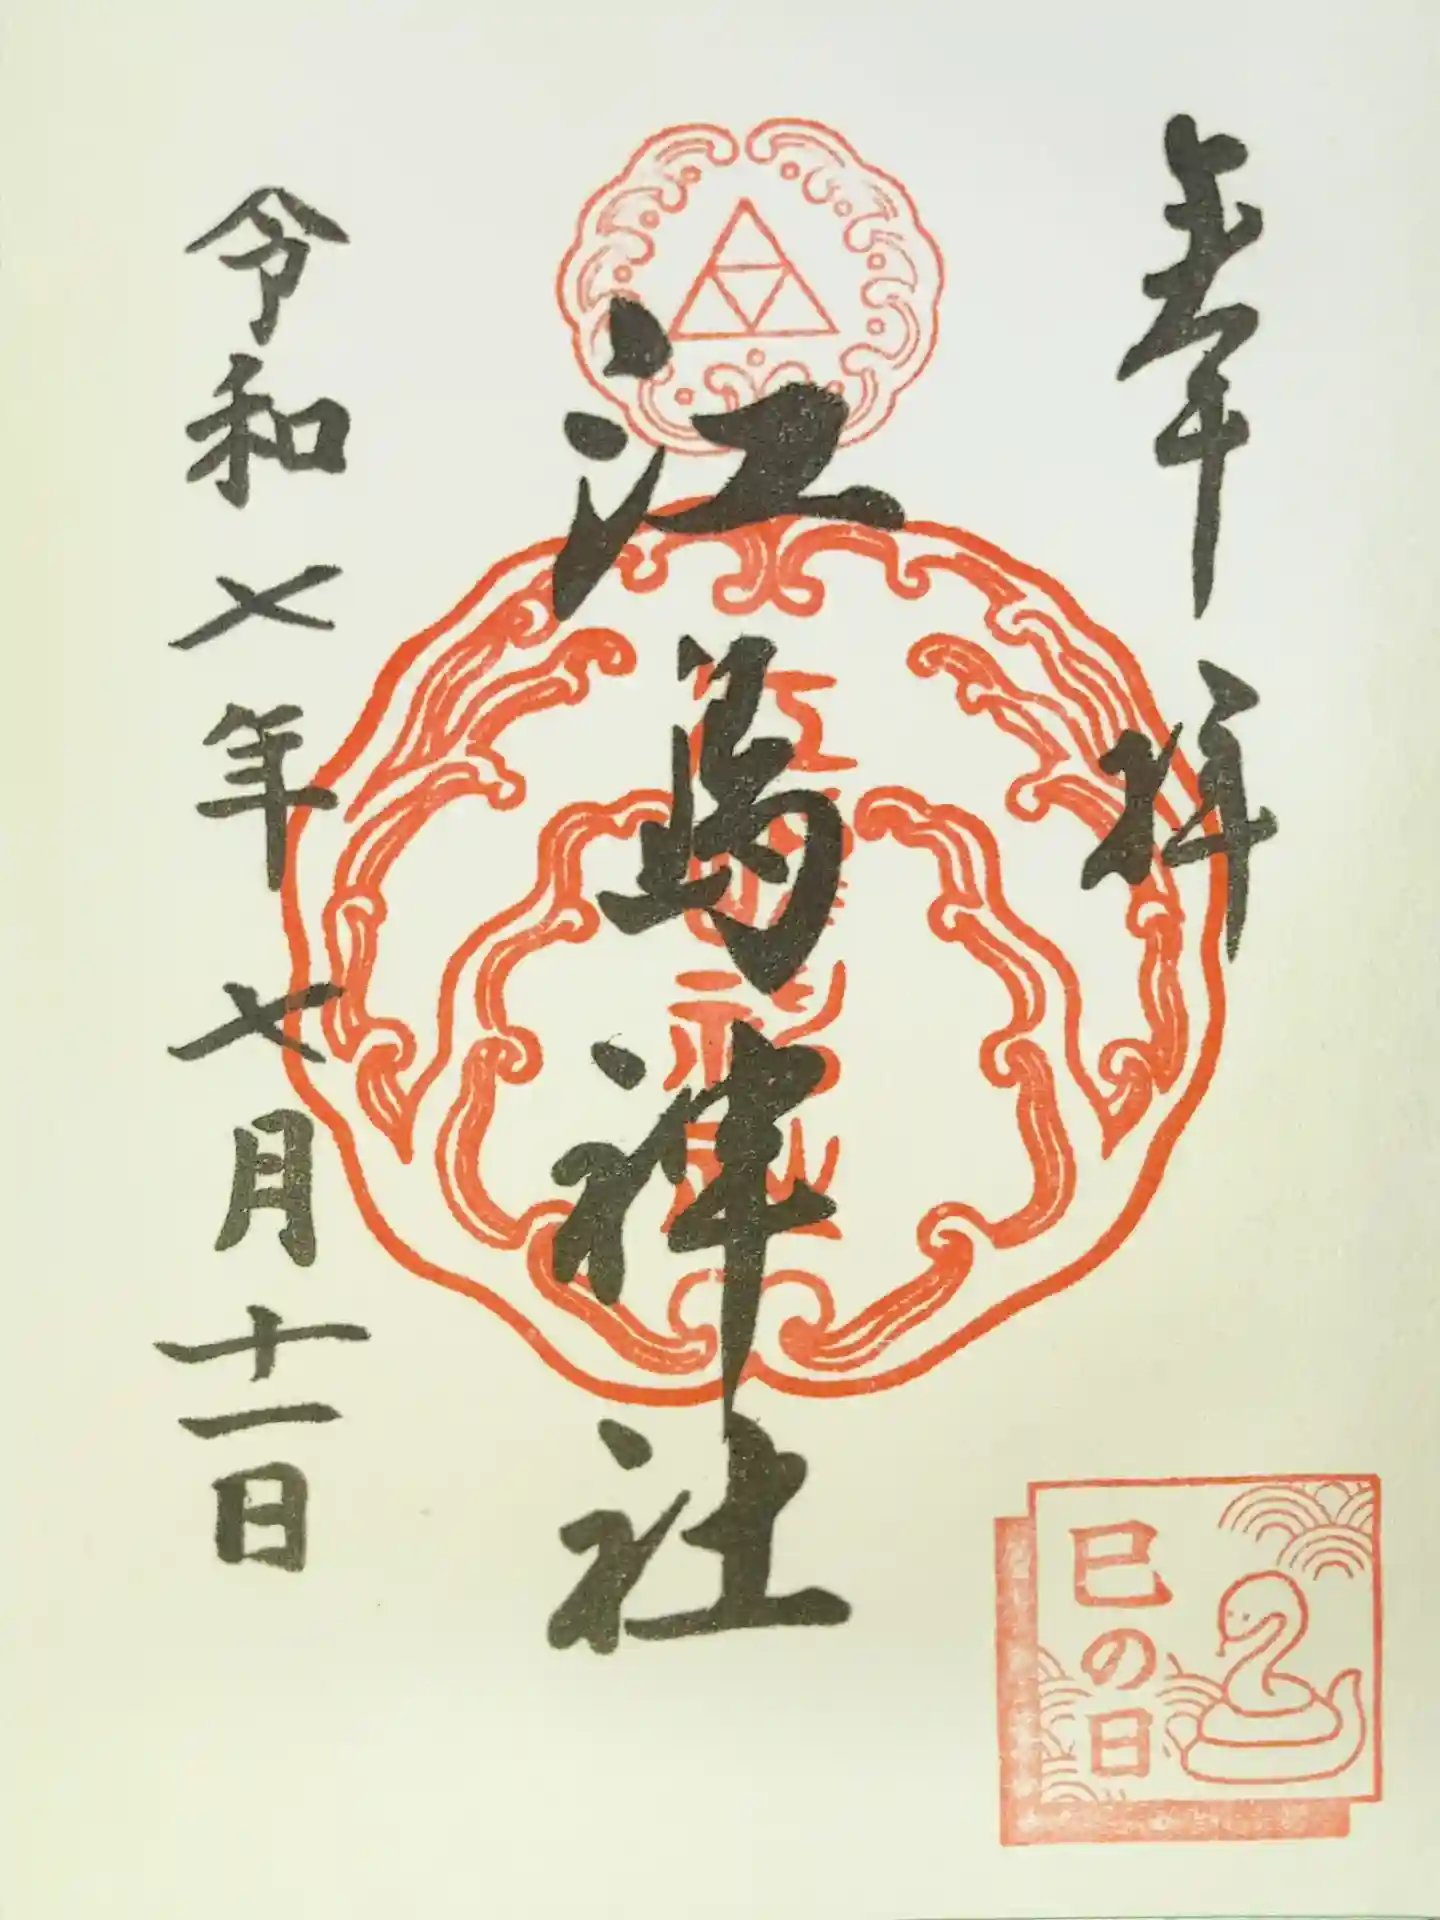 奉拝
巳の日
江島神社
令和七年七月十一日